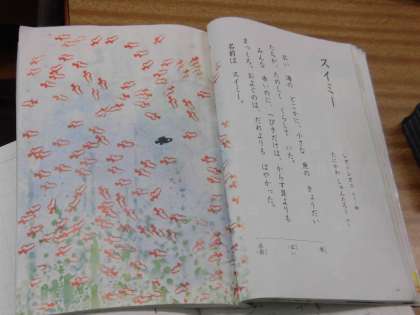 スイミー
レオ＝レオニ　さく
たにかわ　しゅんたろう　やく
広い　海の　どこかに、小さな　魚の　きょうだい
たちが、たのしく　くらして　いた。
みんな　赤いのに、一ぴきだけは、からす貝よりも
まっくろ。およぐのは、だれよりも　はやかった。
名前は　スイミー。